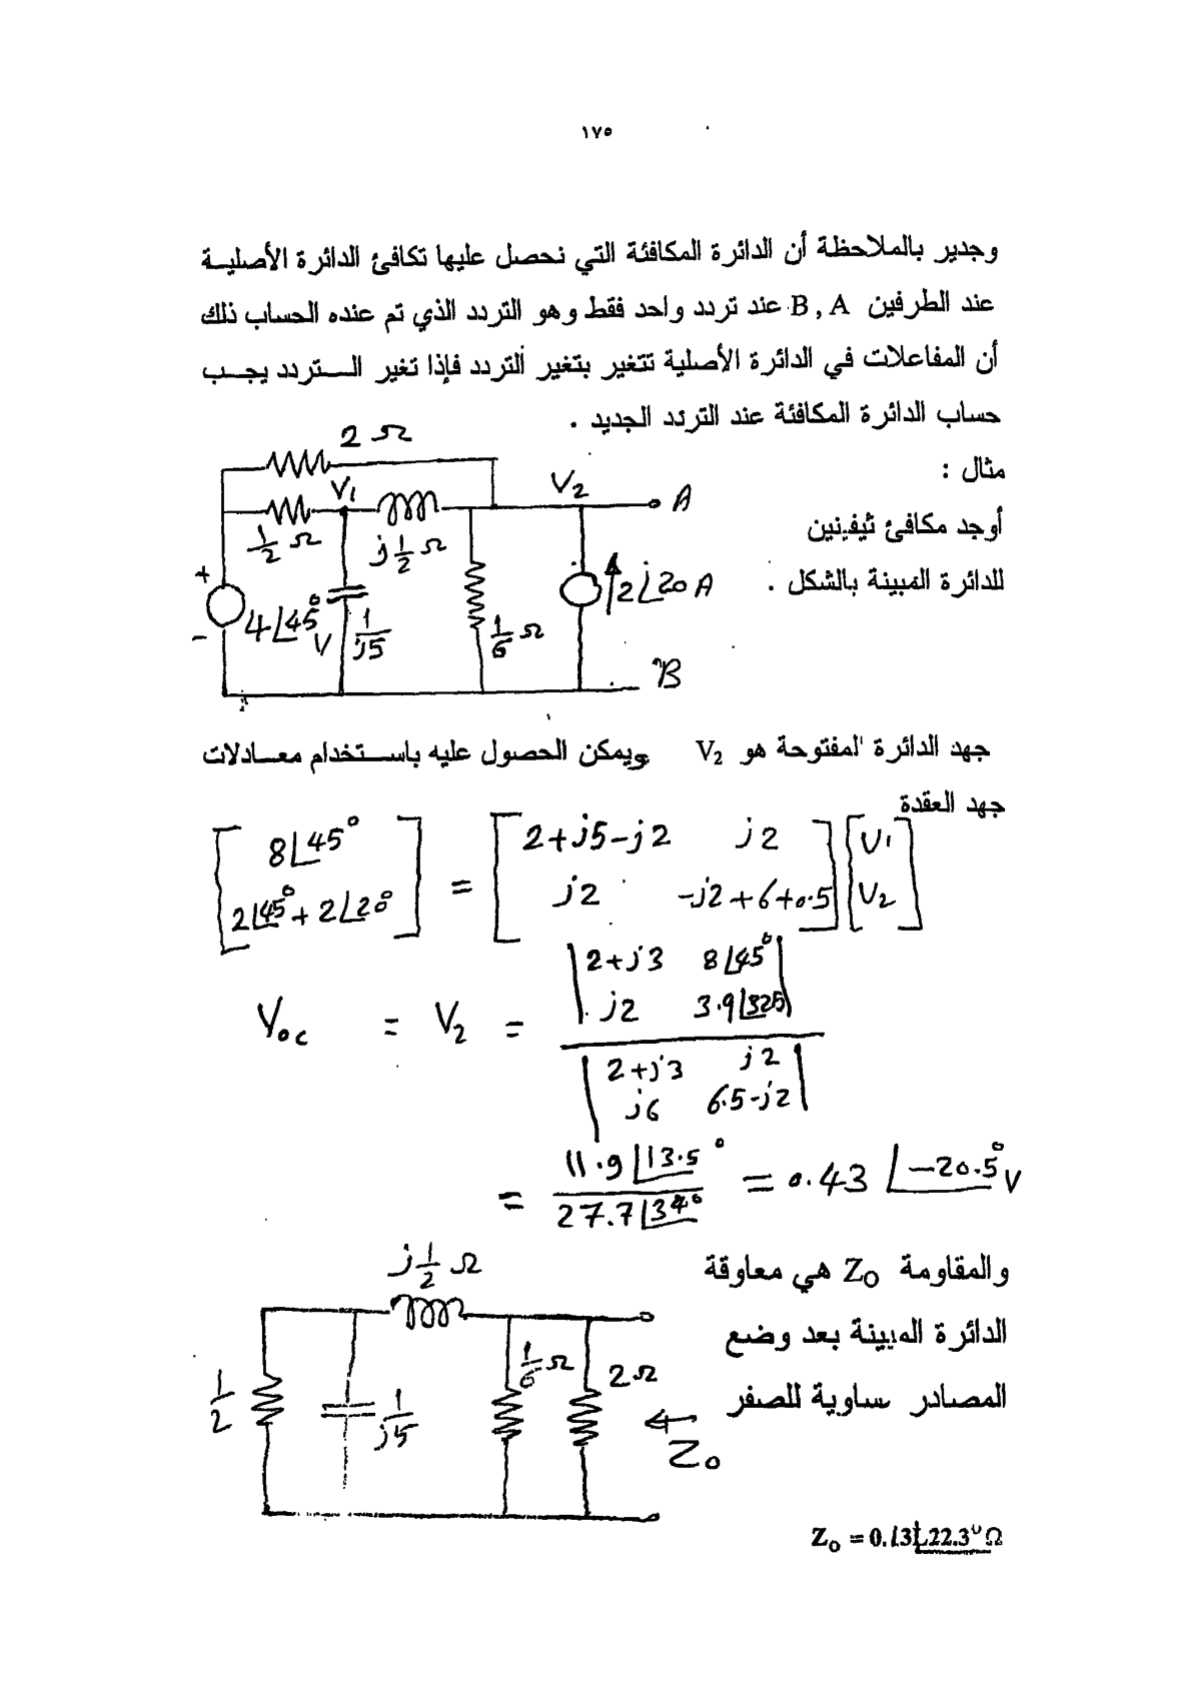 ١٧٥
وجدير بالملاحظة أن الدائرة المكافئة التي نحصل عليها تكافئ الدائرة الأصلية
عند الطرفين B , A عند تردد واحد فقط وهو التردد الذي تم عنده الحساب ذلك
أن المفاعلات في الدائرة الأصلية تتغير بتغير التردد فإذا تغير التردد يجب
حساب الدائرة المكافئة عند التردد الجديد .
مثال :
أوجد مكافئ ثيفينين
للدائرة المبينة بالشكل .
2 Ω
V1
V2
A
1/2 Ω
j 1/2 Ω
+
4∠45° V
-
1/j5
1/6 Ω
2∠20 A
B
جهد الدائرة المفتوحة هو V2 ويمكن الحصول عليه باستخدام معادلات
جهد العقدة
[8∠45° ; 2∠45° + 2∠20°] = [2+j5-j2 j2 ; j2 -j2+6+0.5] [V1 ; V2]
Voc = V2 = |2+j3 8∠45° ; j2 3.9∠325| / |2+j3 j2 ; j6 6.5-j2|
= 11.9∠13.5° / 27.7∠34° = 0.43 ∠-20.5° V
والمقاومة ZO هي معاوقة
الدائرة المبينة بعد وضع
المصادر ساوية للصفر
j 1/2 Ω
1/2
1/j5
1/6 Ω
2Ω
Zo
ZO = 0.13∠22.3° Ω